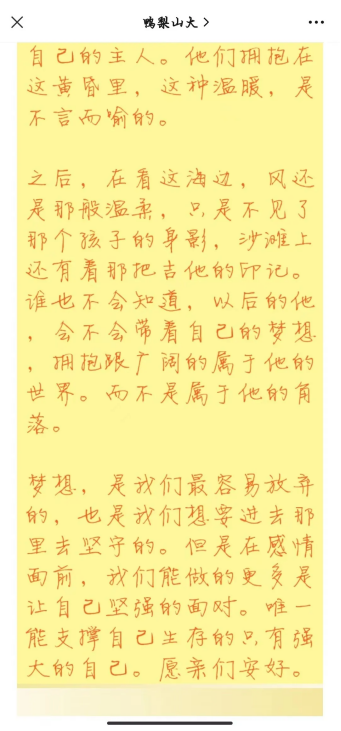 鸭梨山大
自己的主人。他们拥抱在
这黄昏里，这种温暖，是
不言而喻的。
之后，在看这海边，风还
是那般温柔，只是不见了
那个孩子的身影，沙滩上
还有着那把吉他的印记。
谁也不会知道，以后的他
，会不会带着自己的梦想
，拥抱跟广阔的属于他的
世界。而不是属于他的角
落。
梦想，是我们最容易放弃
的，也是我们想要进去那
里去坚守的。但是在感情
面前，我们能做的更多是
让自己坚强的面对。唯一
能支撑自己生存的只有强
大的自己。愿亲们安好。